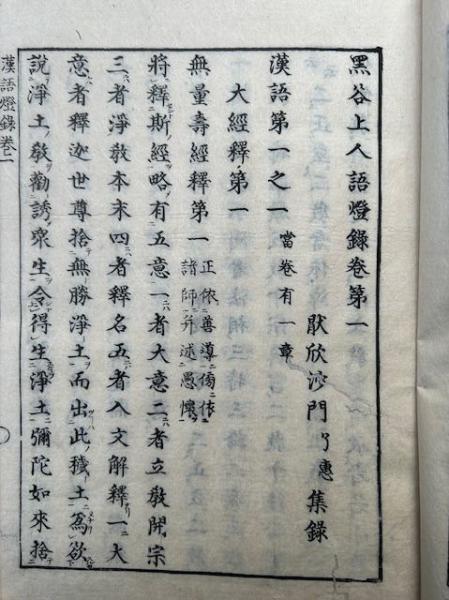 黑谷上人語燈錄卷第一
厭欣沙門了惠集錄
漢語第一之一 當卷有一章
大經釋第一
無量壽經釋第一 正依善導傍依諸師并述愚懷
將釋斯經略有五意一者大意二者立敎開宗
三者淨敎本末四者釋名五者入文解釋一大
意者釋迦世尊捨無勝淨土而出此穢土爲欲
說淨土敎勸誘衆生令得生淨土彌陀如來捨
漢語燈錄卷一